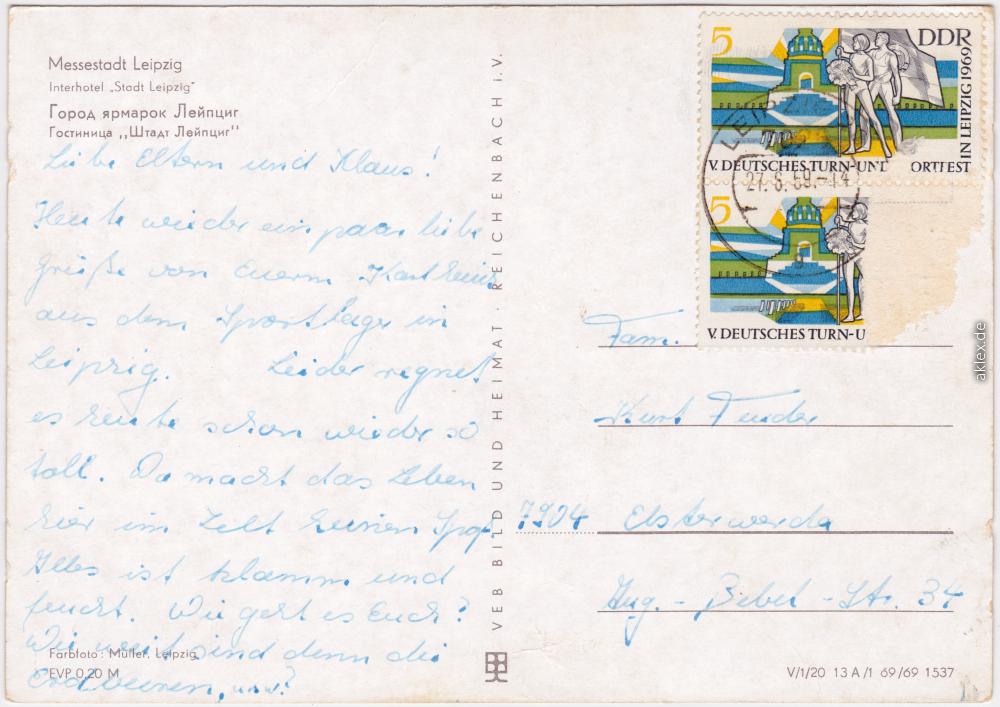 Messestadt Leipzig
Interhotel „Stadt Leipzig"
Город ярмарок Лейпциг
Гостиница ,,Штадт Лейпциг"
Liebe Eltern und Klaus!
Heute wieder ein paar liebe
Grüße von Euerm Karl Heinz
aus dem Sportlager in
Leipzig. Leider regnet
es heute schon wieder so
toll. Da macht das Leben
hier im Zelt keinen Spaß.
Alles ist klamm und
feucht. Wie geht es Euch?
Wie weit sind denn die
Erdbeeren, usw?
Farbfoto: Müller, Leipzig
EVP 0,20 M
VEB BILD UND HEIMAT · REICHENBACH i. V.
5
DDR
V. DEUTSCHES TURN-UNT ORTFEST
IN LEIPZIG 1969
LEIPZIG
27.6.69.-14
5
V. DEUTSCHES TURN-U
Fam.
Kurt
7904 Elsterwerda
Aug.-Bebel-Str. 34
V/1/20 13 A/1 69/69 1537
aklex.de